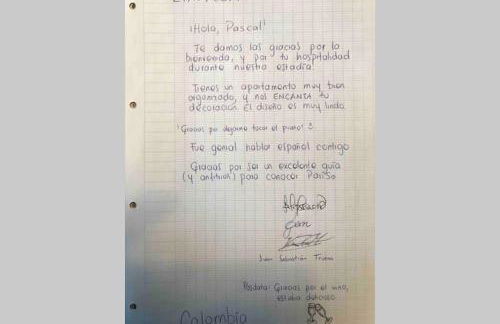 ¡Hola, Pascal!
Te damos las gracias por la
bienvenida, y por tu hospitalidad
durante nuestra estadía!
Tienes un apartamento muy bien
organizado, y nos ENCANTA tu
decoración. El diseño es muy lindo.
¡Gracias por dejarme tocar el piano! :)
Fue genial hablar español contigo
Gracias por ser un excelente guía
(y anfitrión) para conocer
Juan Sebastián
Posdata: Gracias por el vino,
estaba delicioso
Colombia